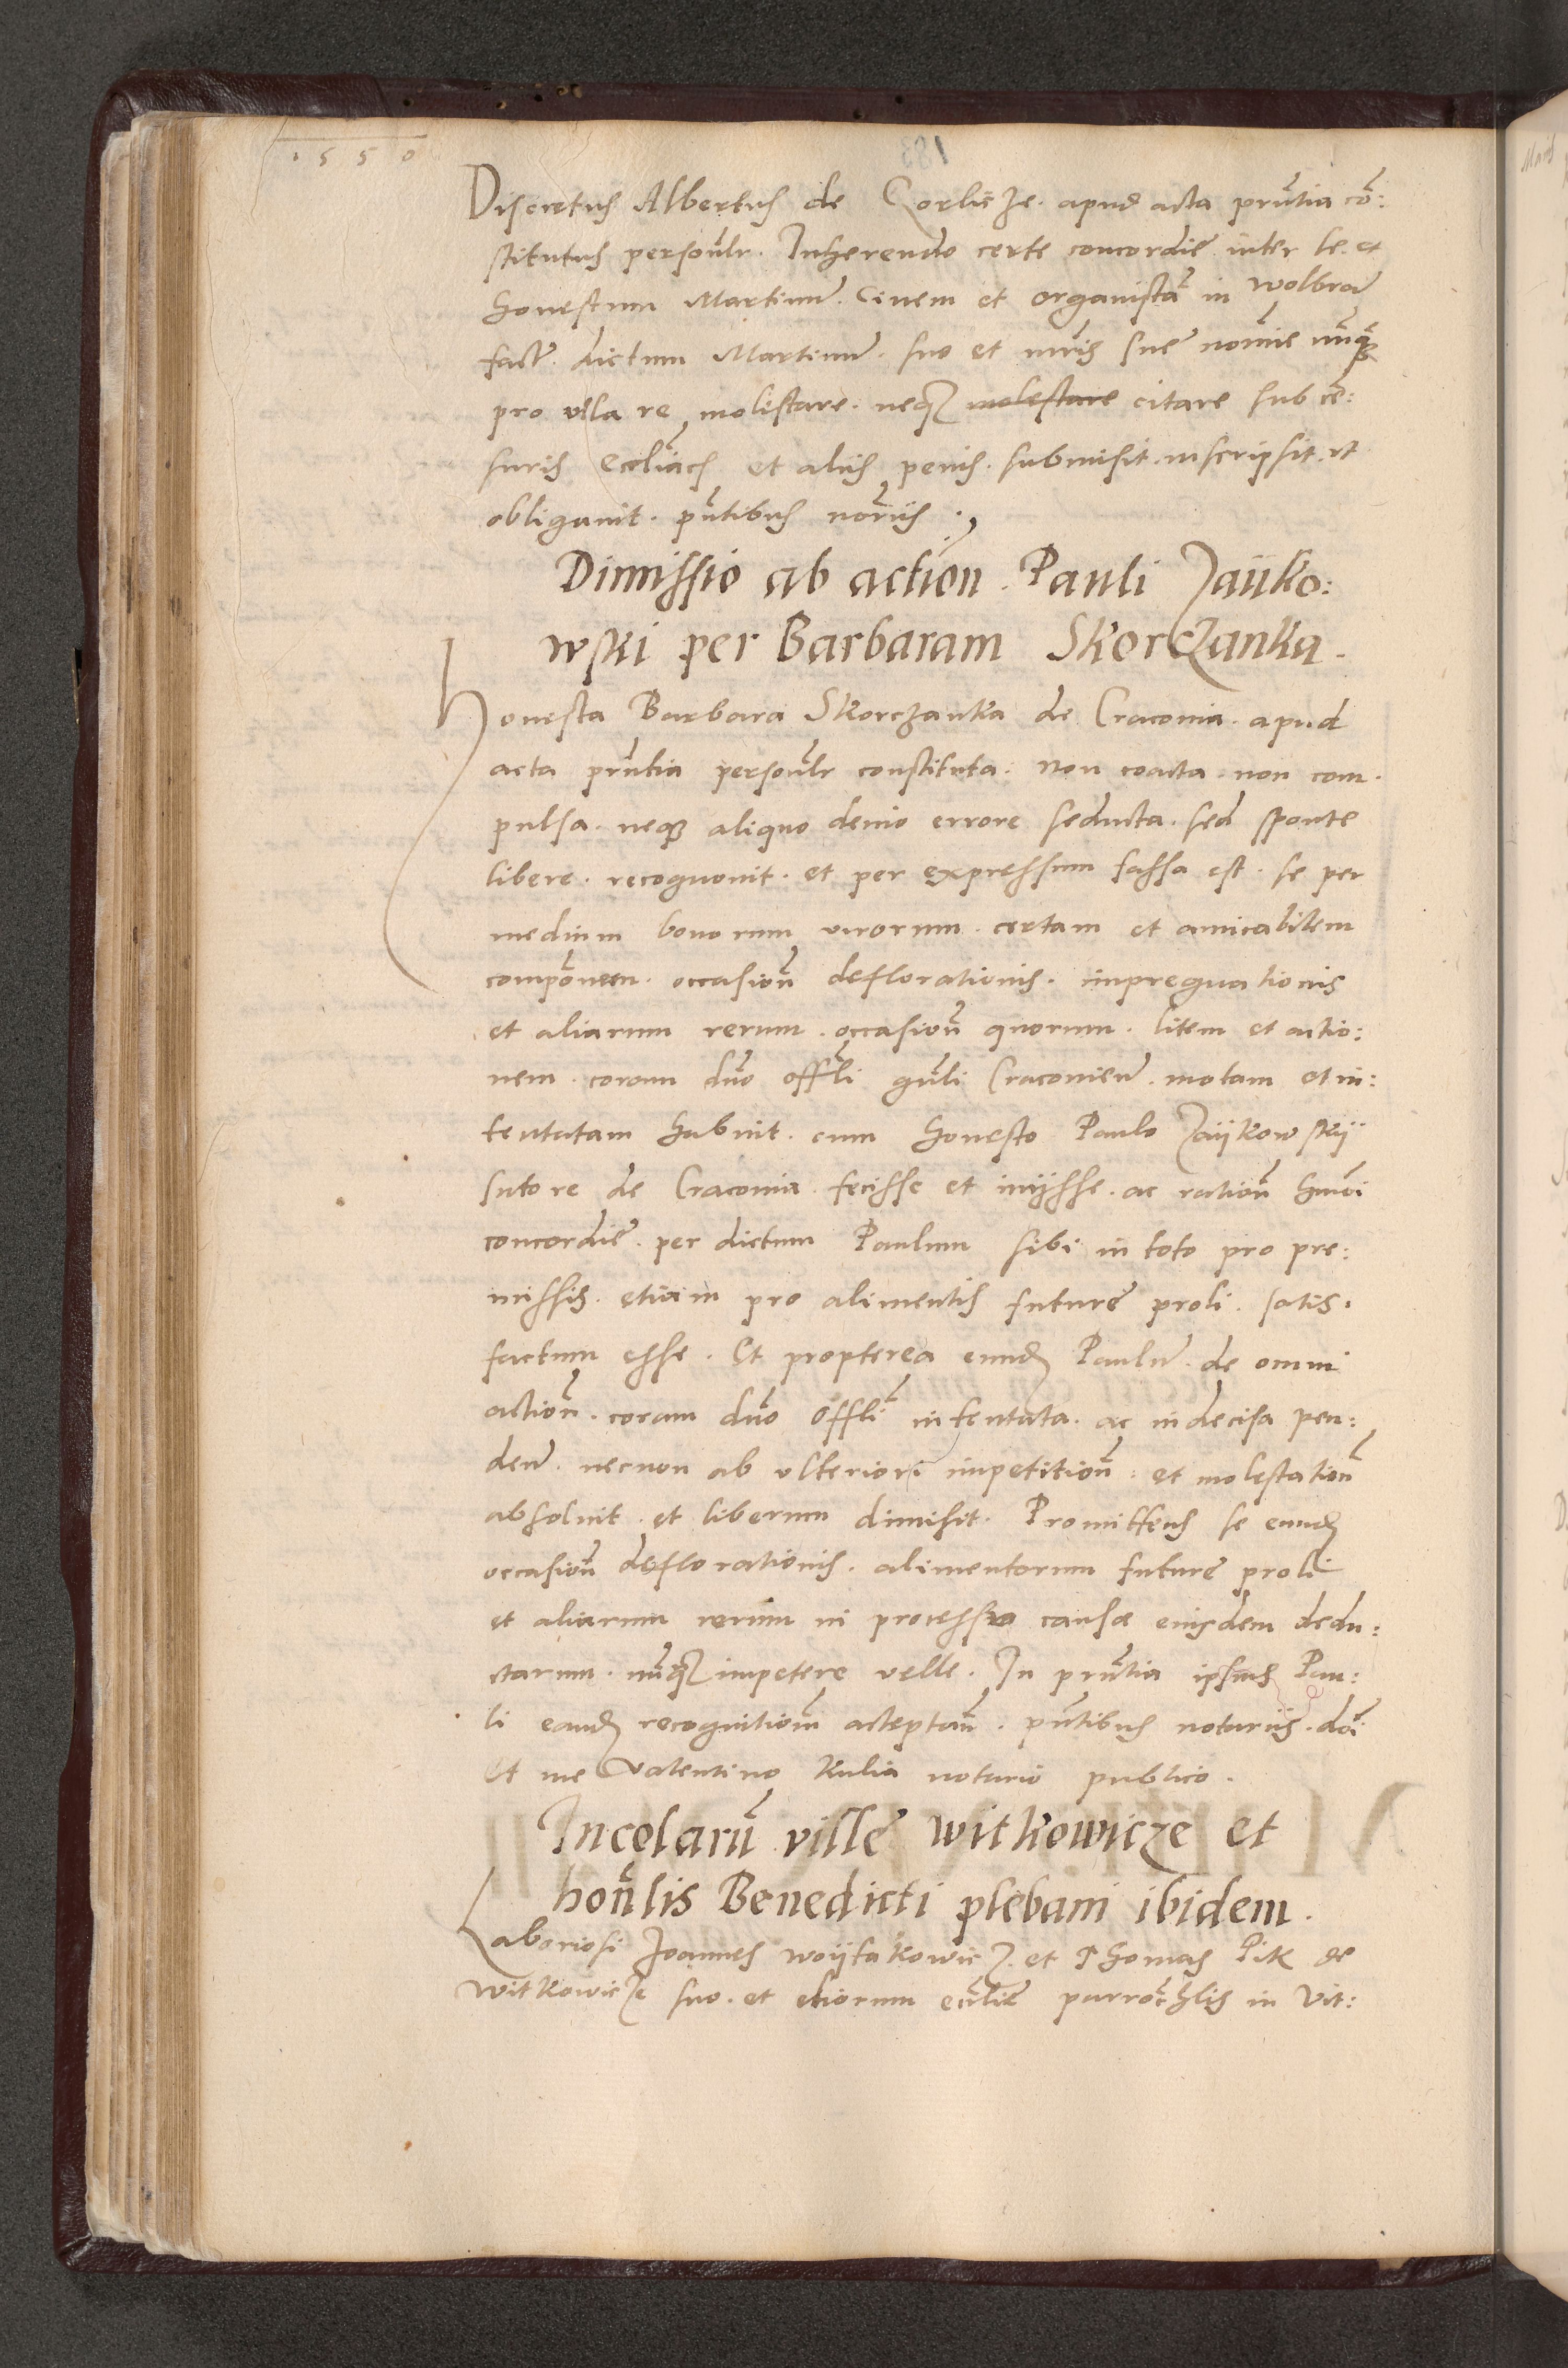 1550
Discretus Albertus de Gorlicze. apud acta pr̃ntia cõ:
stitutus personl̃r. Inherendo certe concordie inter se. et
honestum Martinum̃. Civem et organistã in Wolbrom̃
fact̃. dictum Martinum̃. suo et ux̃ris sue noĩe nunq̃
pro ulla re molestare. neq̃ molestare citare sub cẽ:
suris eccl̃iacis et aliis penis. submisit. inscripsit. et
obligavit. pñtibus nor̃iis.
Dimissio ab action̄. Pauli Zaÿko:
wski per Barbaram Skorczanka.
Honesta Barbara Skorczanka de Cracovia. apud
acta pr̃ntia personl̃r constituta. Non coacta. non com.
pulsa. neq̃ aliquo devio errore seducta. sed sponte
libere. recognovit. et per expressum fassa est. se per
medium bonorum virorum. certam et amicabilem
compõnem. occasioñ deflorationis. impregnationis
et aliarum rerum. occasioñ quorum. litem et actio:
nem. coram dño offl̃i gñli Cracovieñ. motam et in:
tentatam habuit. cum honesto Paulo Zaÿkowskÿ
sutore de Cracovia. fecisse et inijsse. ac ratioñ hmõi
concordie. per dictum Paulum sibi in toto pro pre:
missis. etiam pro alimentis future proli. satis.
factum esse. Et propterea eund̃ Paulũ. de omni
actioñ. coram dño Offl̃i intentata. ac indecisa pen:
deñ. necnon ab ulteriori impetitioñ. et molestatioñ
absolvit. et liberum dimisit. Promittens se eund̃
occasioñ deflorationis. alimentorum future proli
et aliarum rerum in processu cause eiusdem dedu:
ctarum. nunq̃ impetere velle. In pr̃ntia ipsius Pau:
li eand̃ recognitionem acceptañ. pñtibus notariis. dõi
Et me Valentino Kulia notario publico.
Incolarũ ville Witkowicze et
hoñlis Benedicti plebani ibidem.
Laboriosi Joannes Woÿtakowicz. et Thomas Pik de
Witkowicze suo. et aliorum eccl̃ie parrochl̃is in Vit: